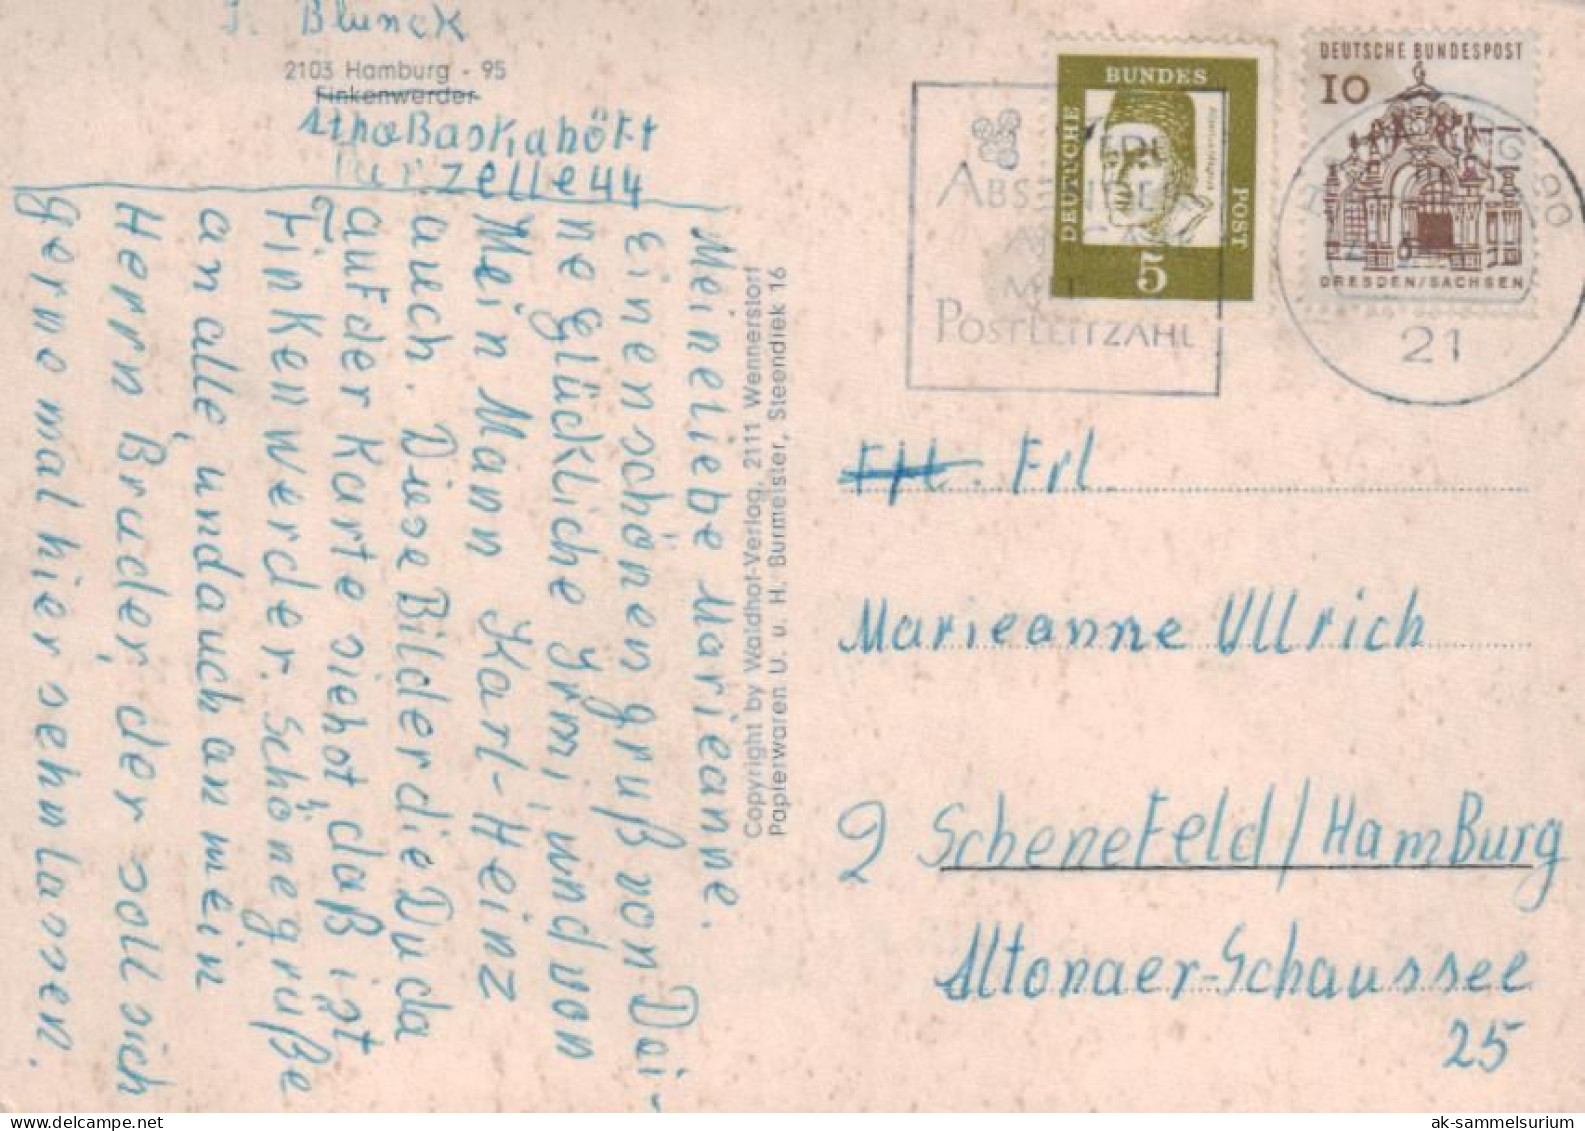 I. Blunck
2103 Hamburg - 95
Finkenwerder
Parzelle 44
Meine liebe Marieanne.
Einen schönen gruß von Dei-
ne glückliche Yrmi, und von
Mein Mann Karl-Heinz
auch. Diese Bilder die Du da
auf der Karte siehst, daß ißt
Finkenwerder. Schöne grüße
an alle, und auch an mein
Herrn Bruder, der soll sich
gerne mal hier sehn lassen.
Copyright by Waldhof-Verlag, 2111 Wennerstorf
Papierwaren U. u. H. Burmeister, Steendiek 16
ABSENDER
MIT
POSTLEITZAHL
BUNDES
DEUTSCHE
POST
5
DEUTSCHE BUNDESPOST
10
DRESDEN/SACHSEN
21
Frl.
Marieanne Ullrich
2 Schenefeld/Hamburg
Altonaer-Schaussee
25
ak-sammelsurium